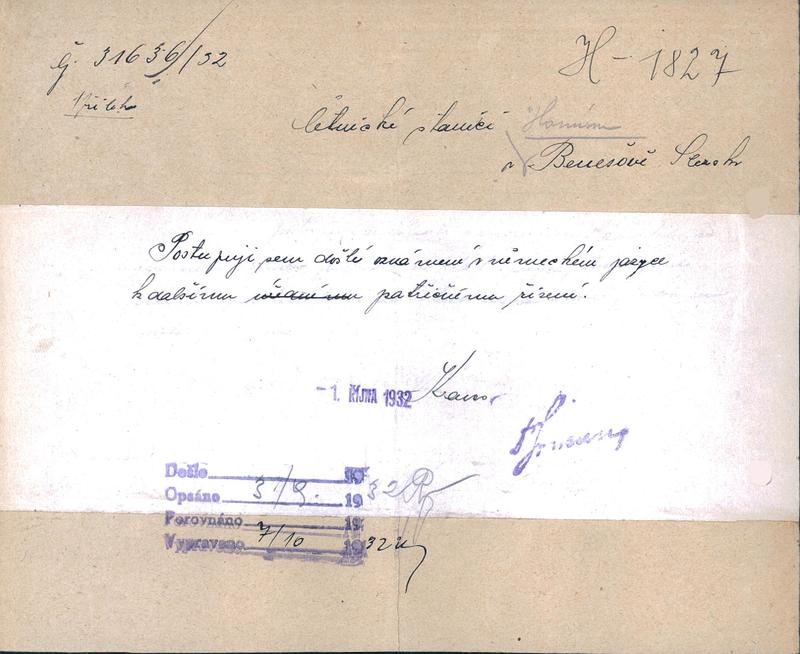 Č. 31636/32
H - 1827
1 příloh
četnické stanici
v Benešově Slezsk
Postupuji sem došlé oznámení v německém jazyce
k dalšímu úřednímu patřičnému řízení.
- 1. ŘÍJNA 1932
Došlo 19
Opsáno 3/9. 19 32
Porovnáno 19
Vypraveno 7/10 1932